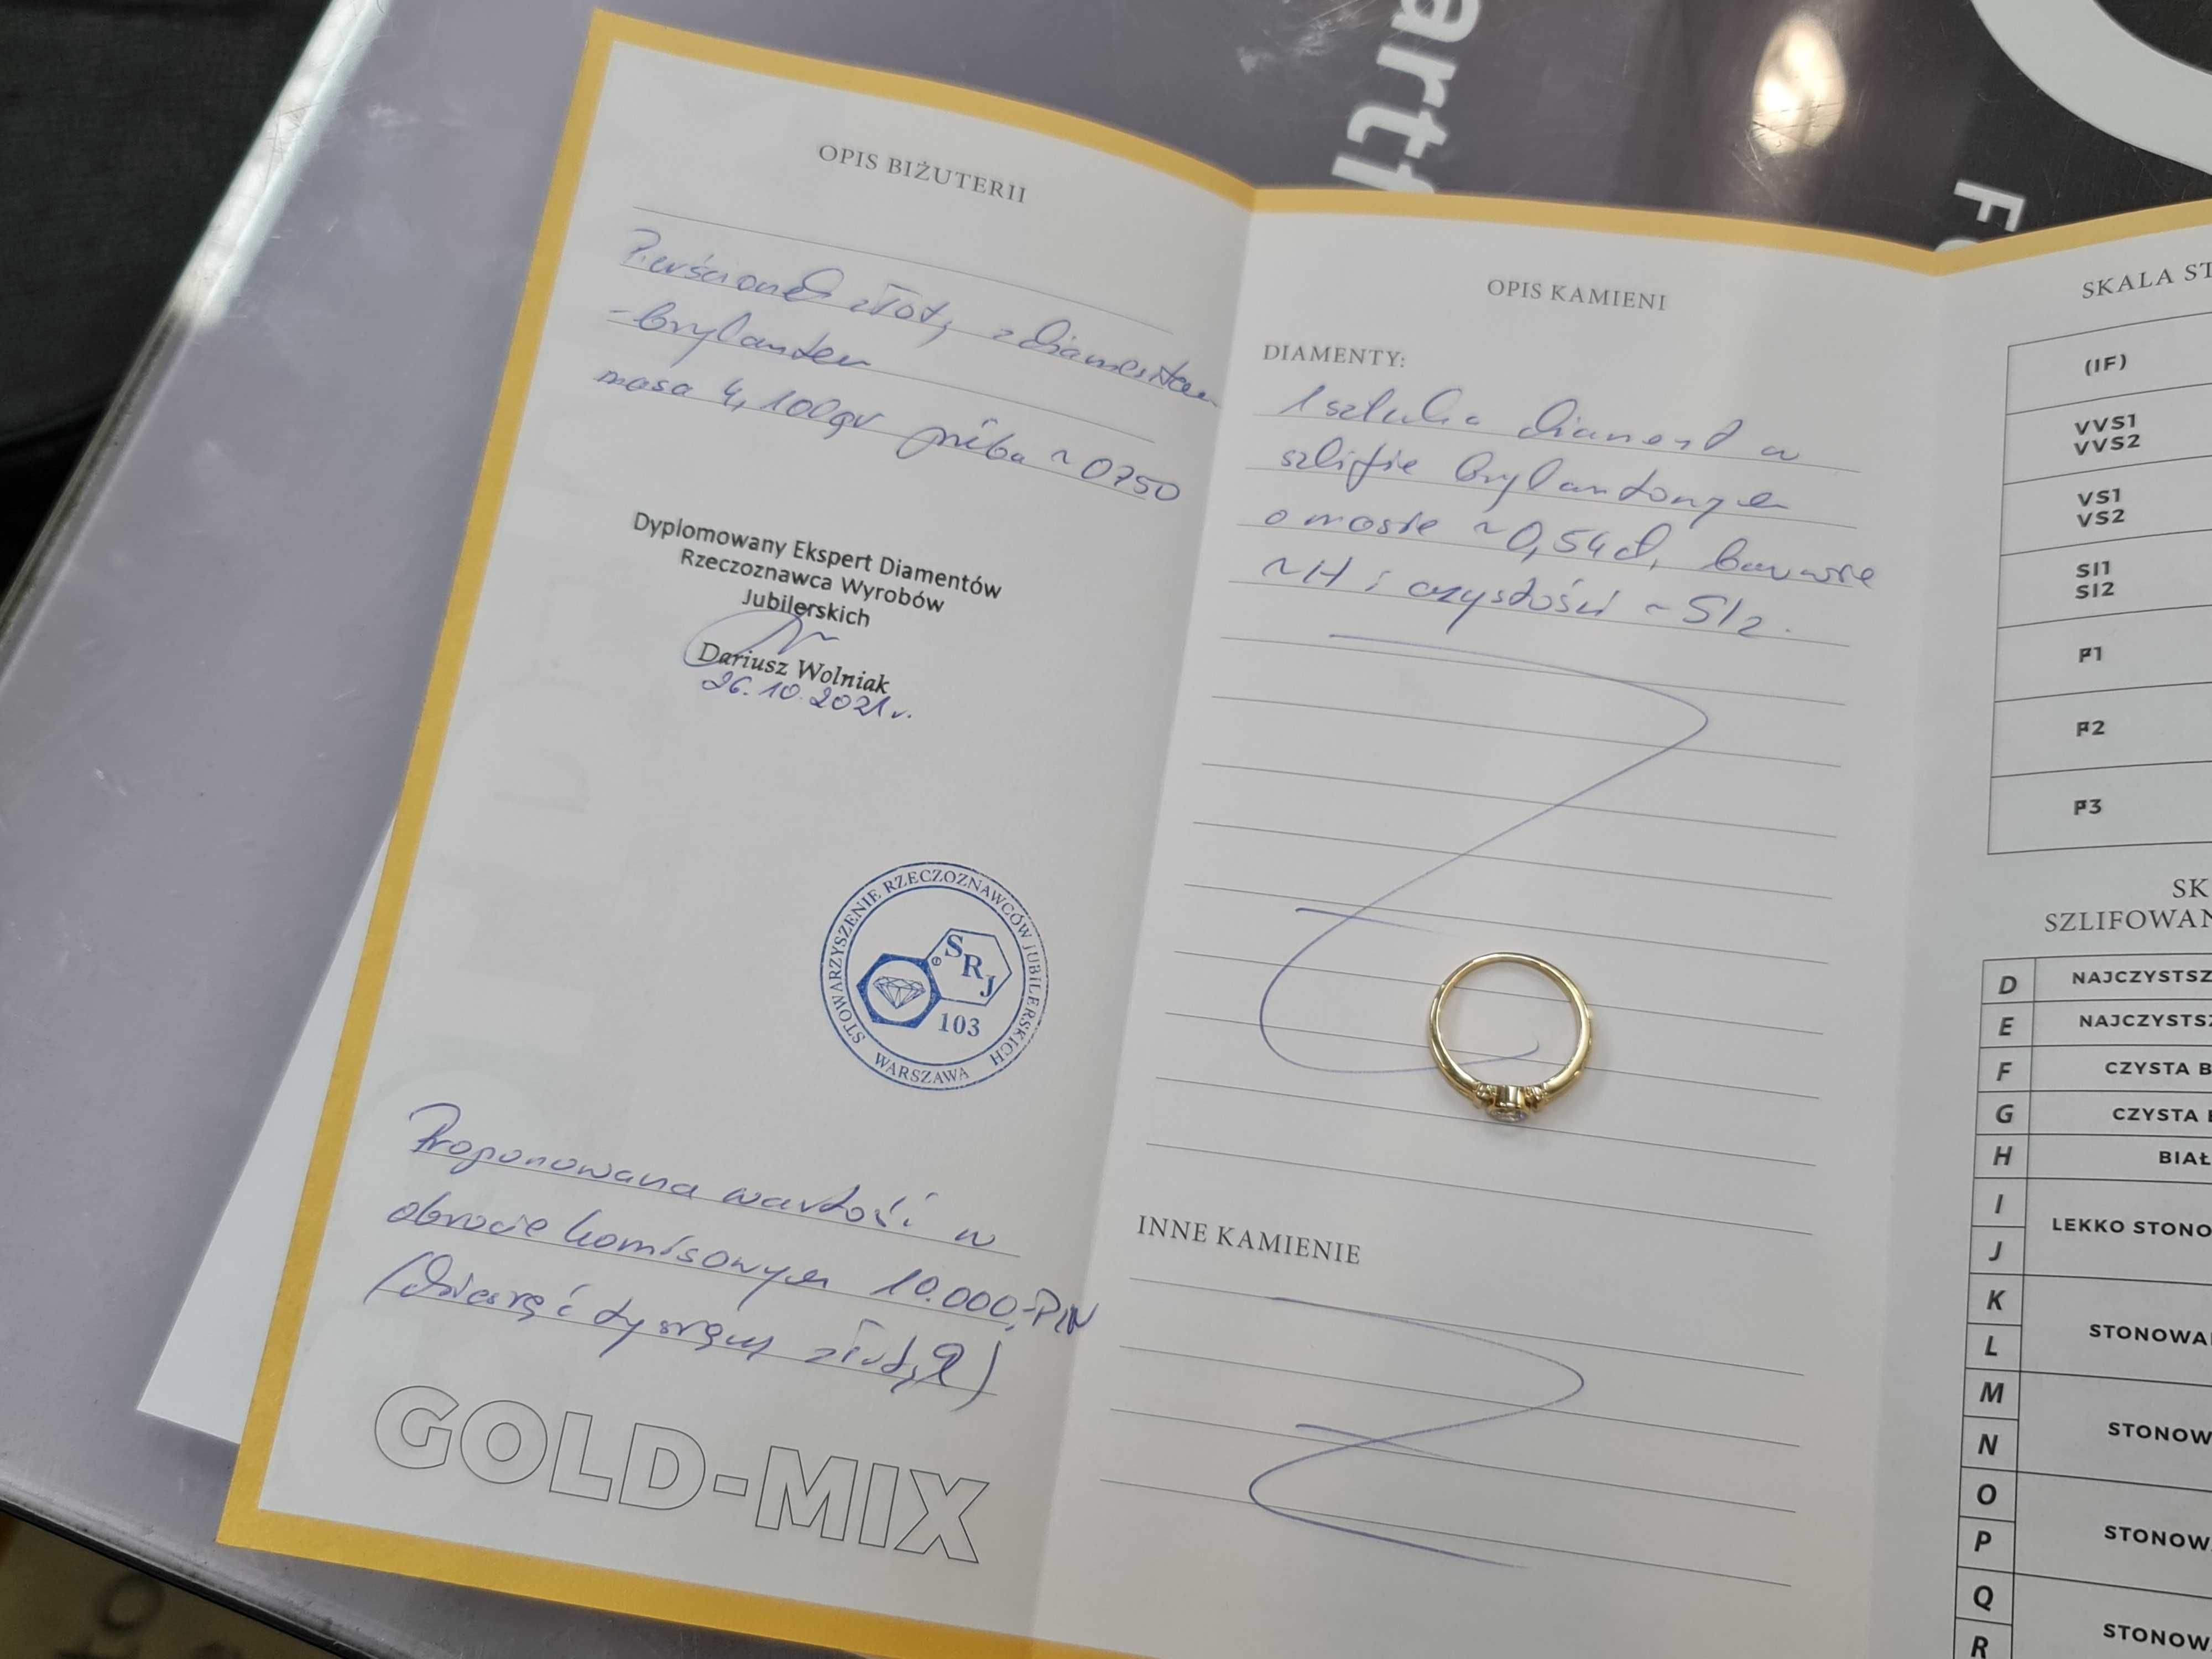 OPIS BIŻUTERII
Pierścionek złoty z diamentem
-brylantem
masa 4,100gr próba ~0750
Dyplomowany Ekspert Diamentów
Rzeczoznawca Wyrobów
Jubilerskich
Dariusz Wolniak
26.10.2021r.
STOWARZYSZENIE RZECZOZNAWCÓW JUBILERSKICH
WARSZAWA
SRJ
103
Proponowana wartość w
obrocie komisowym 10.000,-PLN
(dziesięć tysięcy złotych)
GOLD-MIX
OPIS KAMIENI
DIAMENTY:
1 sztuka diament w
szlifie brylantowym
o masie ~0,54ct, barwie
~H i czystości ~SI2.
INNE KAMIENIE
SKALA ST
(IF)
VVS1
VVS2
VS1
VS2
SI1
SI2
P1
P2
P3
SK
SZLIFOWAN
D NAJCZYSTSZ
E NAJCZYSTSZ
F CZYSTA B
G CZYSTA
H BIAŁ
I
LEKKO STONO
J
K
STONOWA
L
M
STONOW
N
O
STONOW
P
Q
STONOW
R
art
F